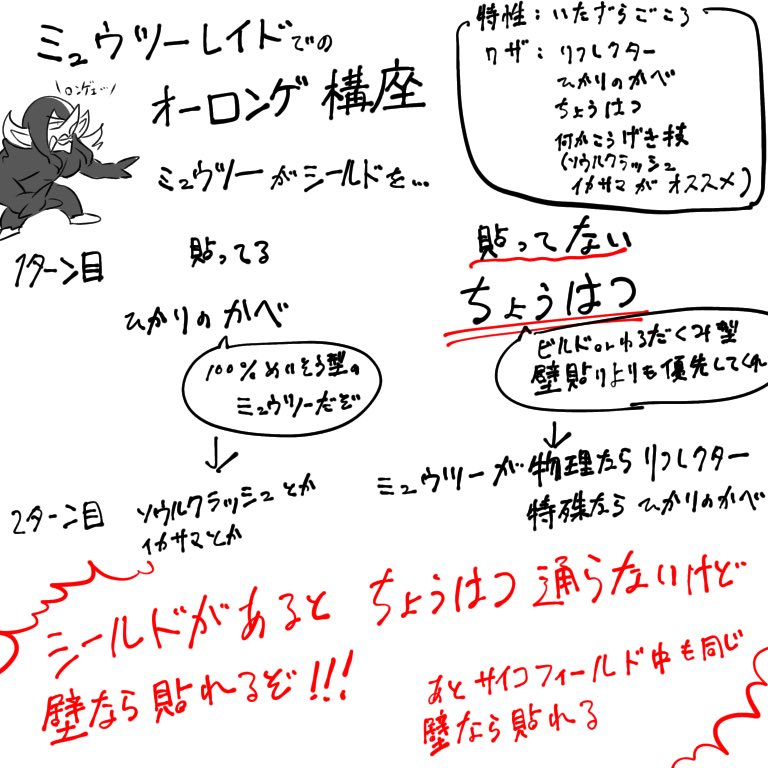 ミュウツーレイドでの
オーロンゲ構座
\ロンゲェ…/
ミュウツーがシールドを…
特性：いたずらごころ
ワザ：リフレクター
ひかりのかべ
ちょうはつ
何かこうげき技
(ソウルクラッシュ
イカサマがオススメ)
1ターン目
貼ってる
ひかりのかべ
100%めいそう型の
ミュウツーだぞ
↓
2ターン目
ソウルクラッシュとか
イカサマとか
貼ってない
ちょうはつ
ビルドorわるだくみ型
壁貼りよりも優先してくれ
↓
ミュウツーが物理ならリフレクター
特殊ならひかりのかべ
シールドがあるとちょうはつ通らないけど
壁なら貼れるぞ!!!
あとサイコフィールド中も同じ
壁なら貼れる